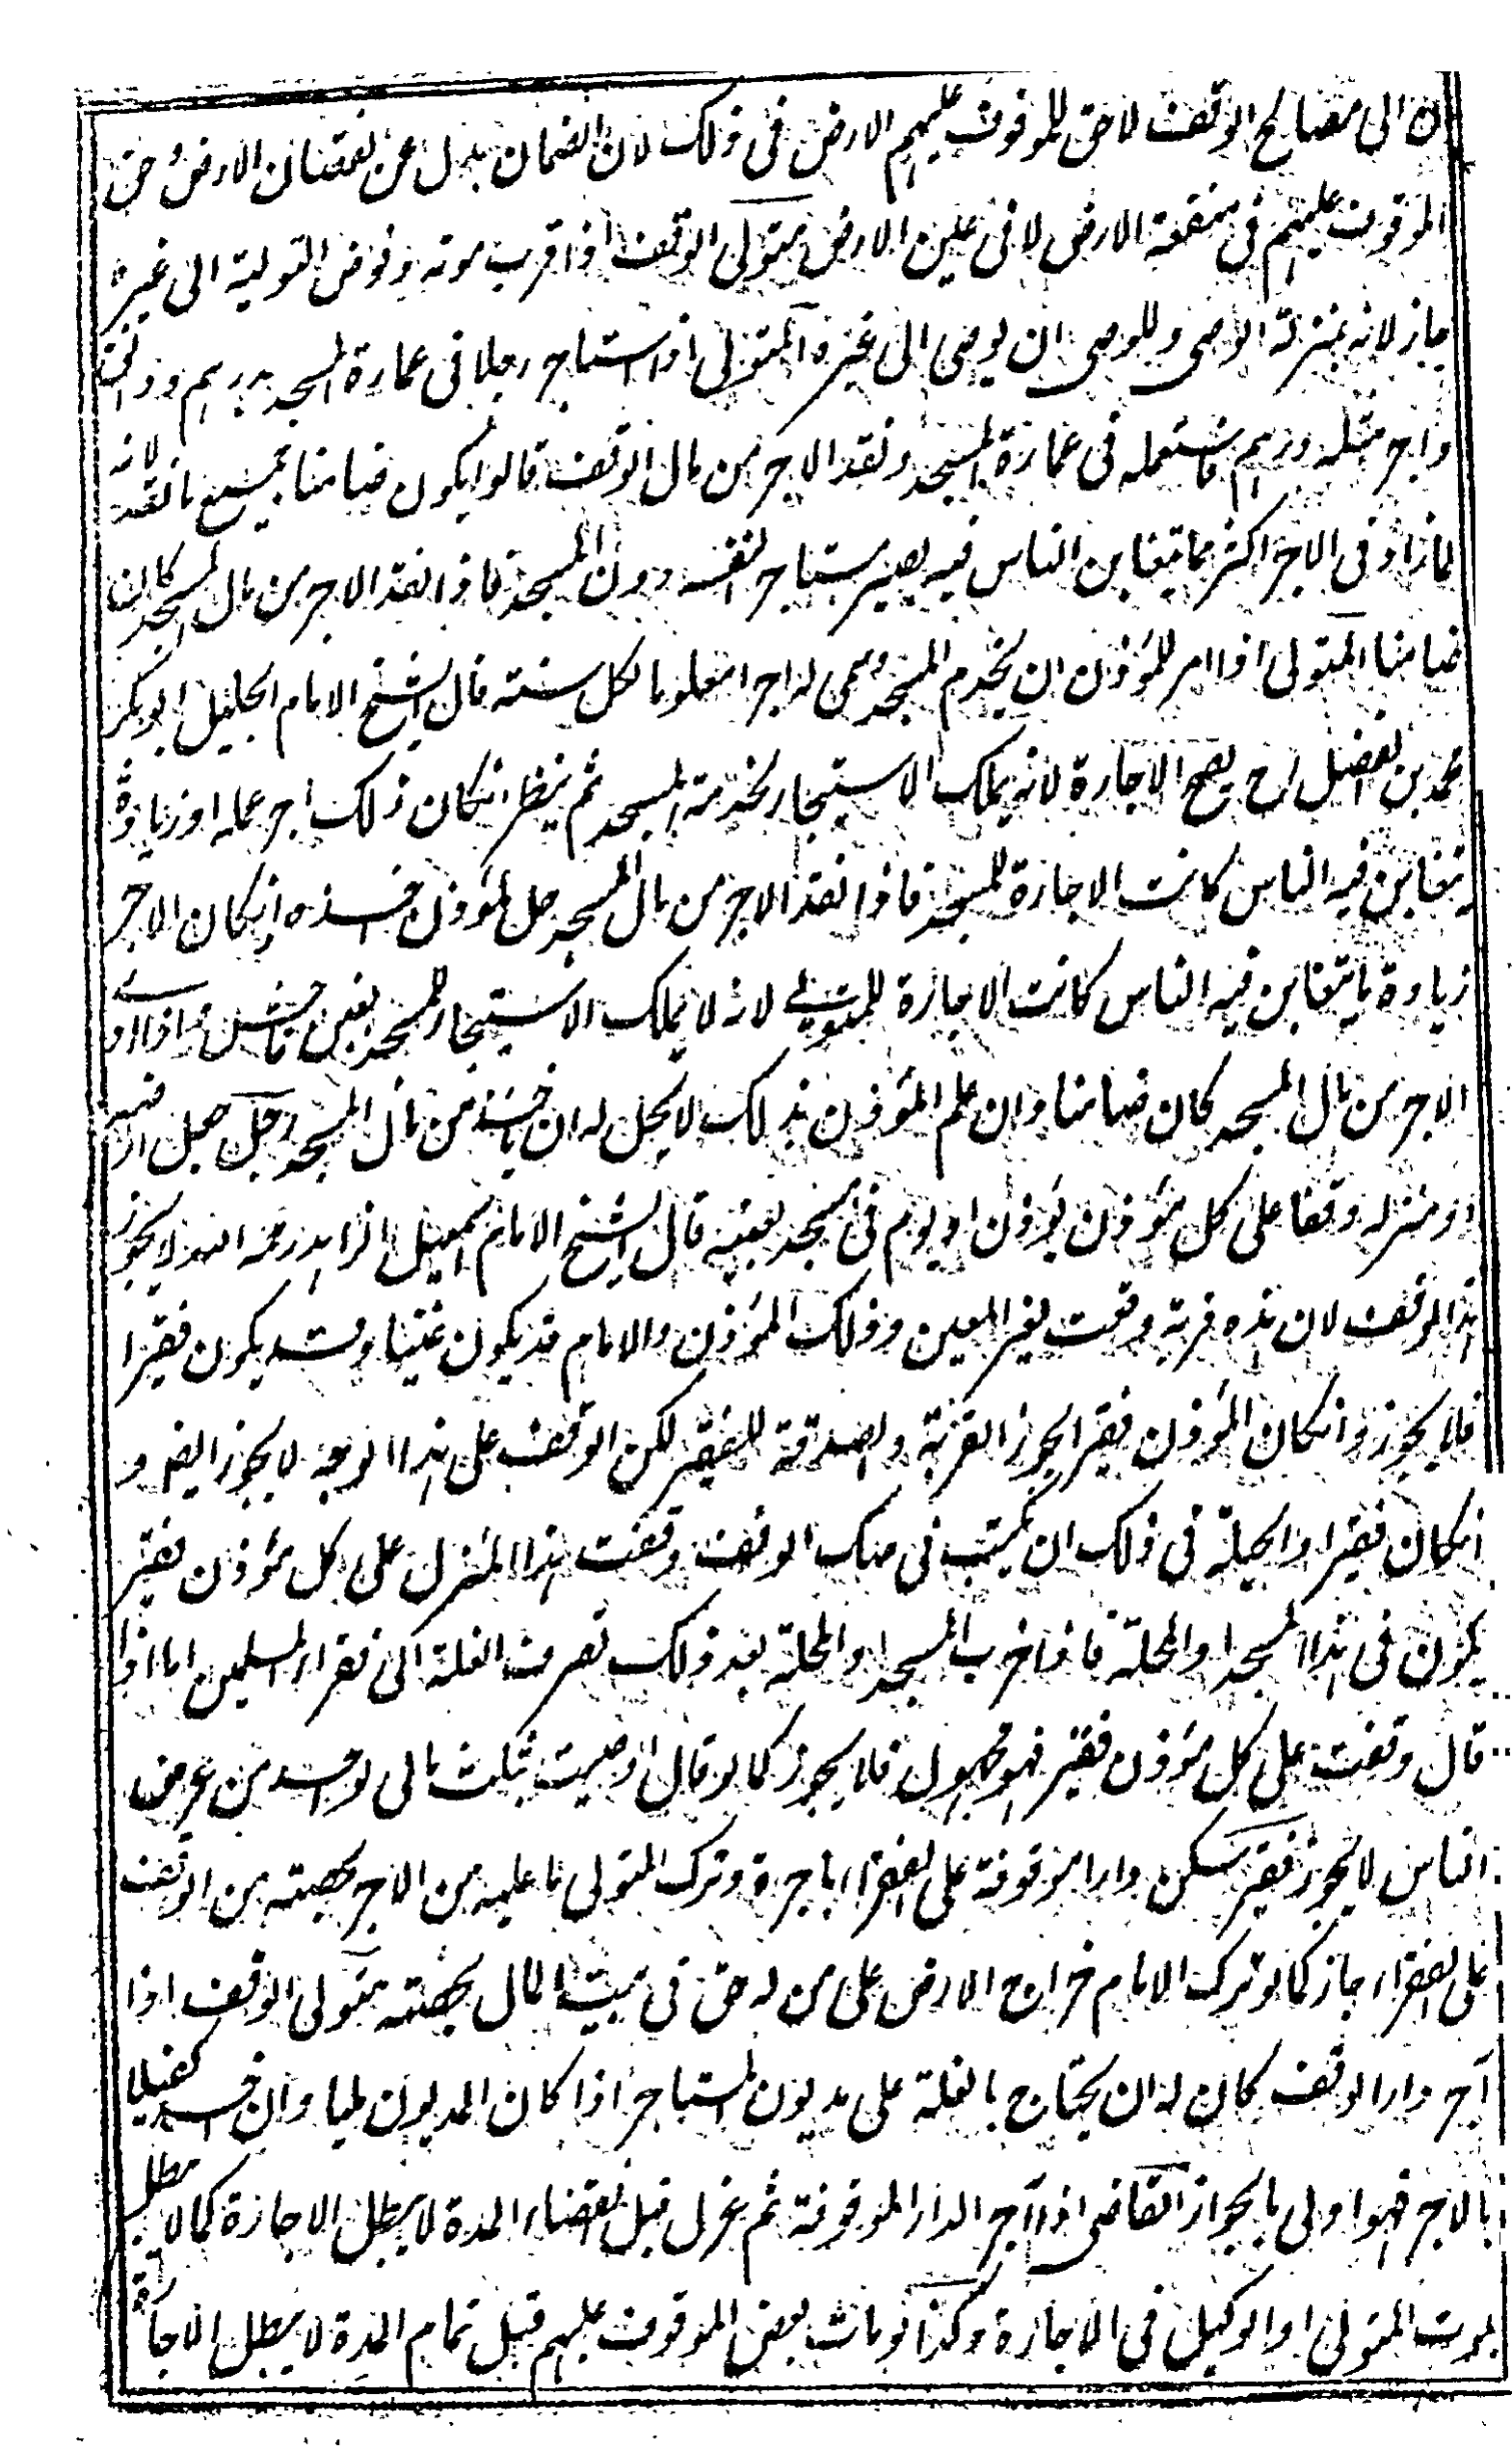 ن الى مصالح الوقف لا حق للموقوف عليهم الارض فى ذلك لان الضمان بدل عن نقصان الارض وحق
الموقوف عليهم فى منفعة الارض لا فى عين الارض متولى الوقف اذا قرب موته وفوض التولية الى غيره
جاز لانه بمنزلة الوصى وللوصى ان يوصى الى غيره المتولى اذا استاجر رجلا فى عمارة المسجد بدرهم ودانق
واجر مثله درهم فاستعمله فى عمارة المسجد ونقد الاجر من مال الوقف قالوا يكون ضامنا بجميع ما نقد لانه
لما زاد فى الاجر اكثر مما يتغابن الناس فيه يصير مستاجرا لنفسه دون المسجد فاذا نقد الاجر من مال المسجد كان
ضامنا المتولى اذا امر المؤذن ان يخدم المسجد وسمى له اجرا معلوما لكل سنة قال الشيخ الامام الجليل ابو بكر
محمد بن الفضل رح يصح الاجارة لانه يملك الاستيجار لخدمة المسجد ثم ينظر انكان ذلك اجر عمله او زيادة
يتغابن فيه الناس كانت الاجارة للمسجد فاذا نقد الاجر من مال المسجد حل للمؤذن اخذه وانكان الاجر
زيادة ما يتغابن فيه الناس كانت الاجارة للمتولى لانه لا يملك الاستيجار للمسجد بغبن فاحش فاذا ادى
الاجر من مال المسجد كان ضامنا وان علم المؤذن بذلك لا يحل له ان ياخذ من مال المسجد رجل جعل ارضه
او منزله وقفا على كل مؤذن يؤذن او يؤم فى مسجد بعينه قال الشيخ الامام اسمعيل الزاهد رحمه الله لا يجوز
هذا الوقف لان هذه قربة وقعت لغير المعين وذلك المؤذن والامام قد يكون غنيا وقد يكون فقيرا
فلا يجوز وانكان المؤذن فقيرا يجوز القربة والصدقة للفقير لكن الوقف على هذا الوجه لا يجوز ايضا و
انكان فقيرا والحيلة فى ذلك ان يكتب فى صك الوقف وقفت هذا المنزل على كل مؤذن فقير
يكون فى هذا المسجد او المحلة فاذا خرب المسجد او المحلة بعد ذلك تصرف الغلة الى فقراء المسلمين اما اذا
قال وقفت على كل مؤذن فقير فهو مجهول فلا يجوز كما لو قال اوصيت بثلث مالى لواحد من عرض
الناس لا يجوز فقير سكن دارا موقوفة على الفقراء باجرة وترك المتولى ما عليه من الاجر بحصته من الوقف
على الفقراء جاز كما لو ترك الامام خراج الارض على من له حق فى بيت المال بحصته متولى الوقف اذا
آجر دار الوقف كان له ان يحتاج بالغلة على مديون المستاجر اذا كان المديون مليا وان اخذ كفيلا
بالاجر فهو اولى بالجواز القاضى اذا آجر الدار الموقوفة ثم عزل قبل انقضاء المدة لا يبطل الاجارة كما لا يبطل
بموت المتولى او الوكيل فى الاجارة وكذا لو مات بعض الموقوف عليهم قبل تمام المدة لا يبطل الاجارة